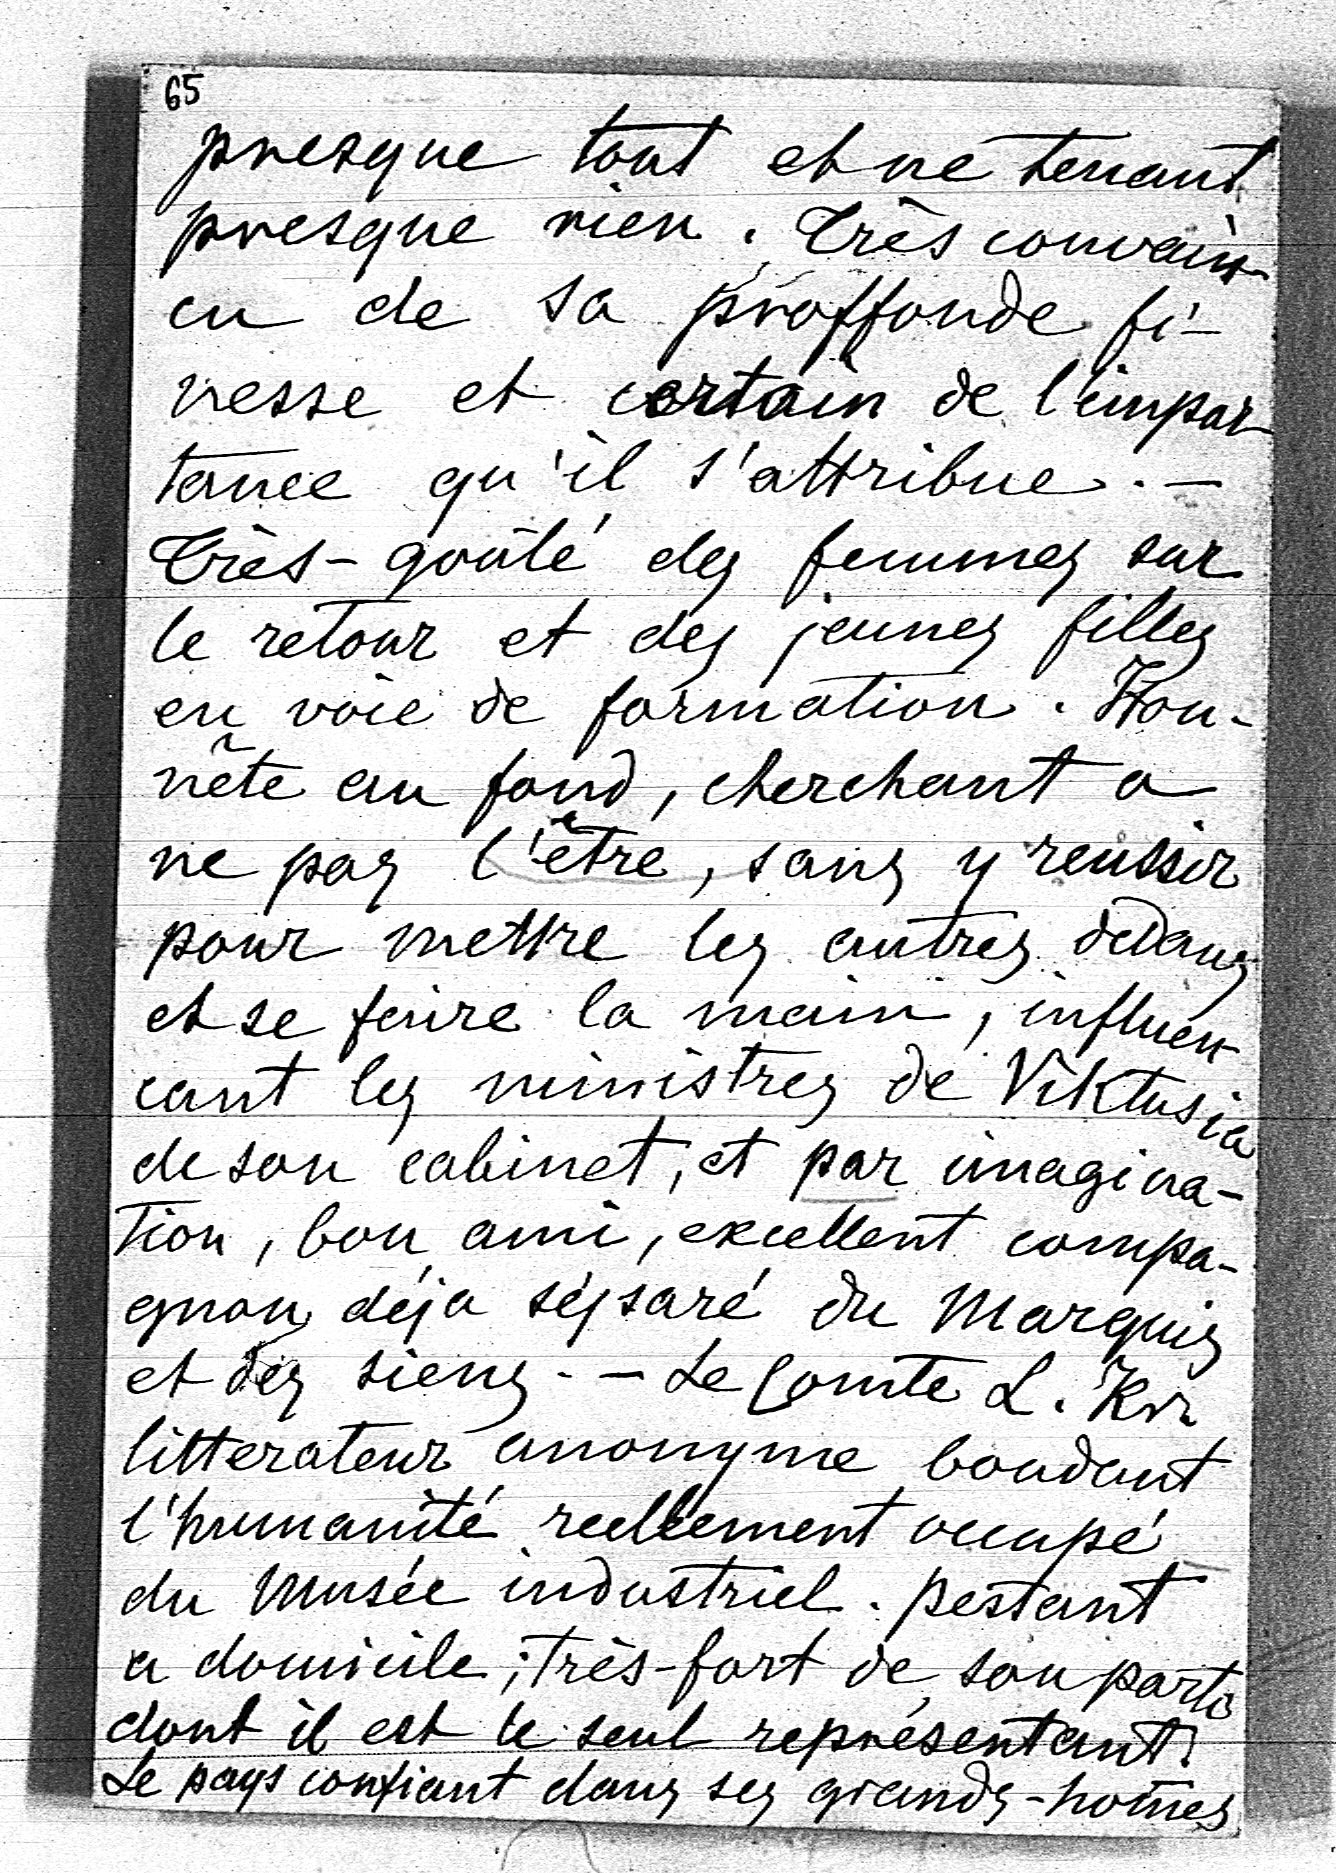 65
presque tout et ne tenant
presque rien. Très convain-
cu de sa proffonde fi-
nesse et certain de l'impor-
tance qu'il s'attribue. -
Très-goûté des femmes sur
le retour et des jeunes filles
en voie de formation. Hon-
nête au fond, cherchant a
ne pas l'être, sans y reussir
pour mettre les autres dedans
et se faire la main, influen-
cant les ministres de Viktusia
de son cabinet, et par imagina-
tion, bon ami, excellent compa-
gnon déja séparé du Marquis
et des siens. - Le Comte L. Kr.
litterateur anonyme boudant
l'humanité reellement occupé
du Musée industriel. pestant
a domicile; Très-fort de son parti
dont il est le seul représentant.
Le pays confiant dans ses grands-homes